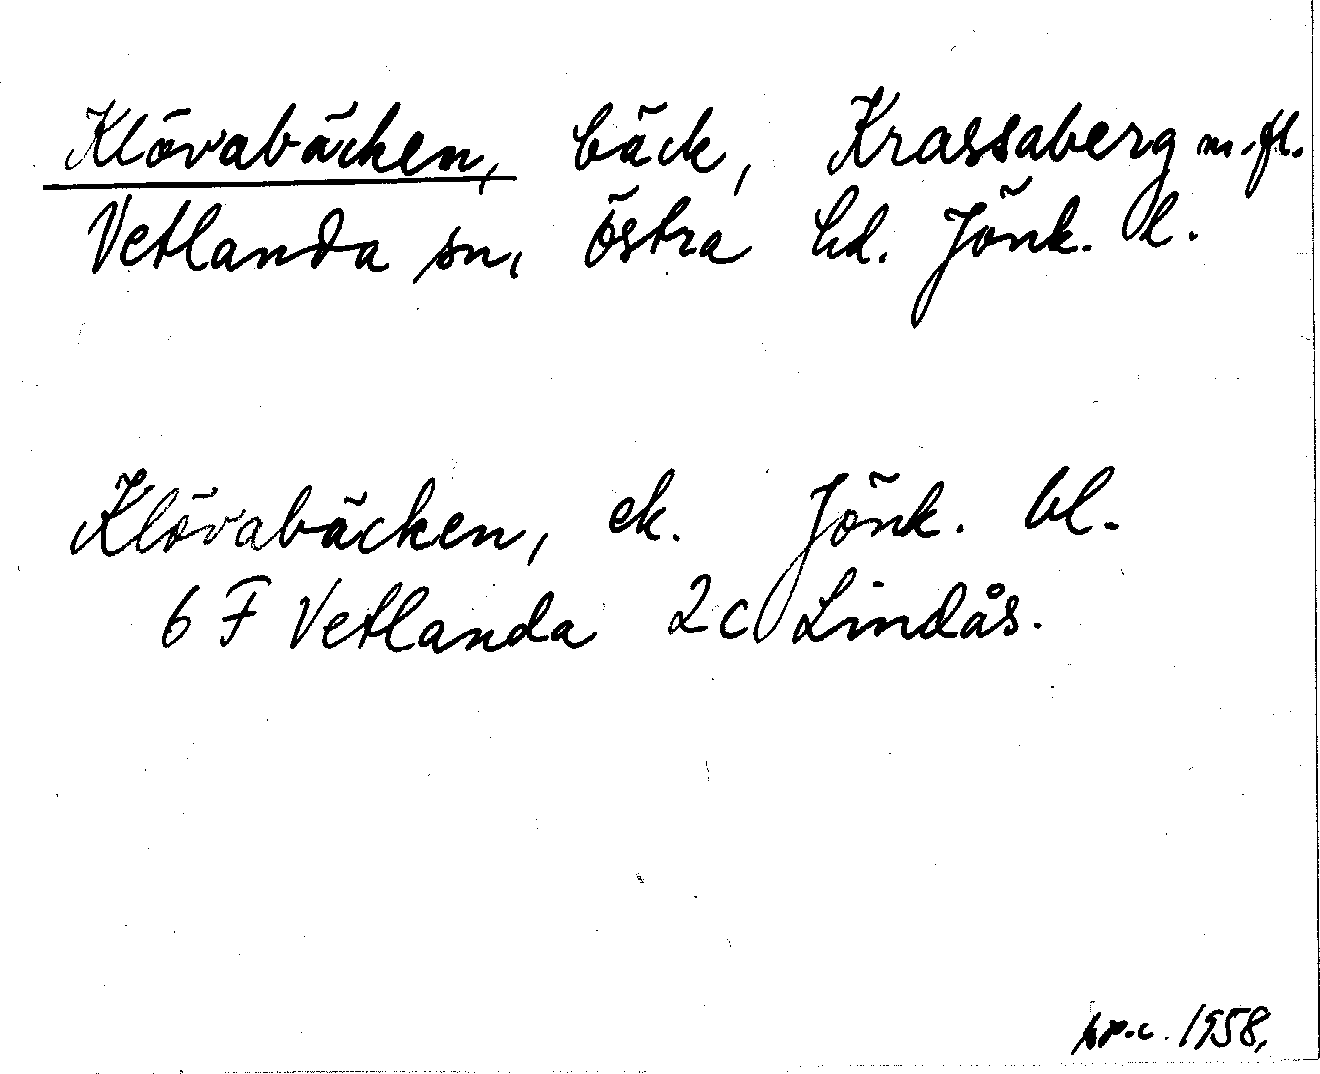 Klövabäcken, bäck, Krassaberg m.fl.
Vetlanda sn, östra hd. Jönk. l.
Klövabäcken, ek. Jönk. bl.
6 F Vetlanda 2c Lindås.
1958,